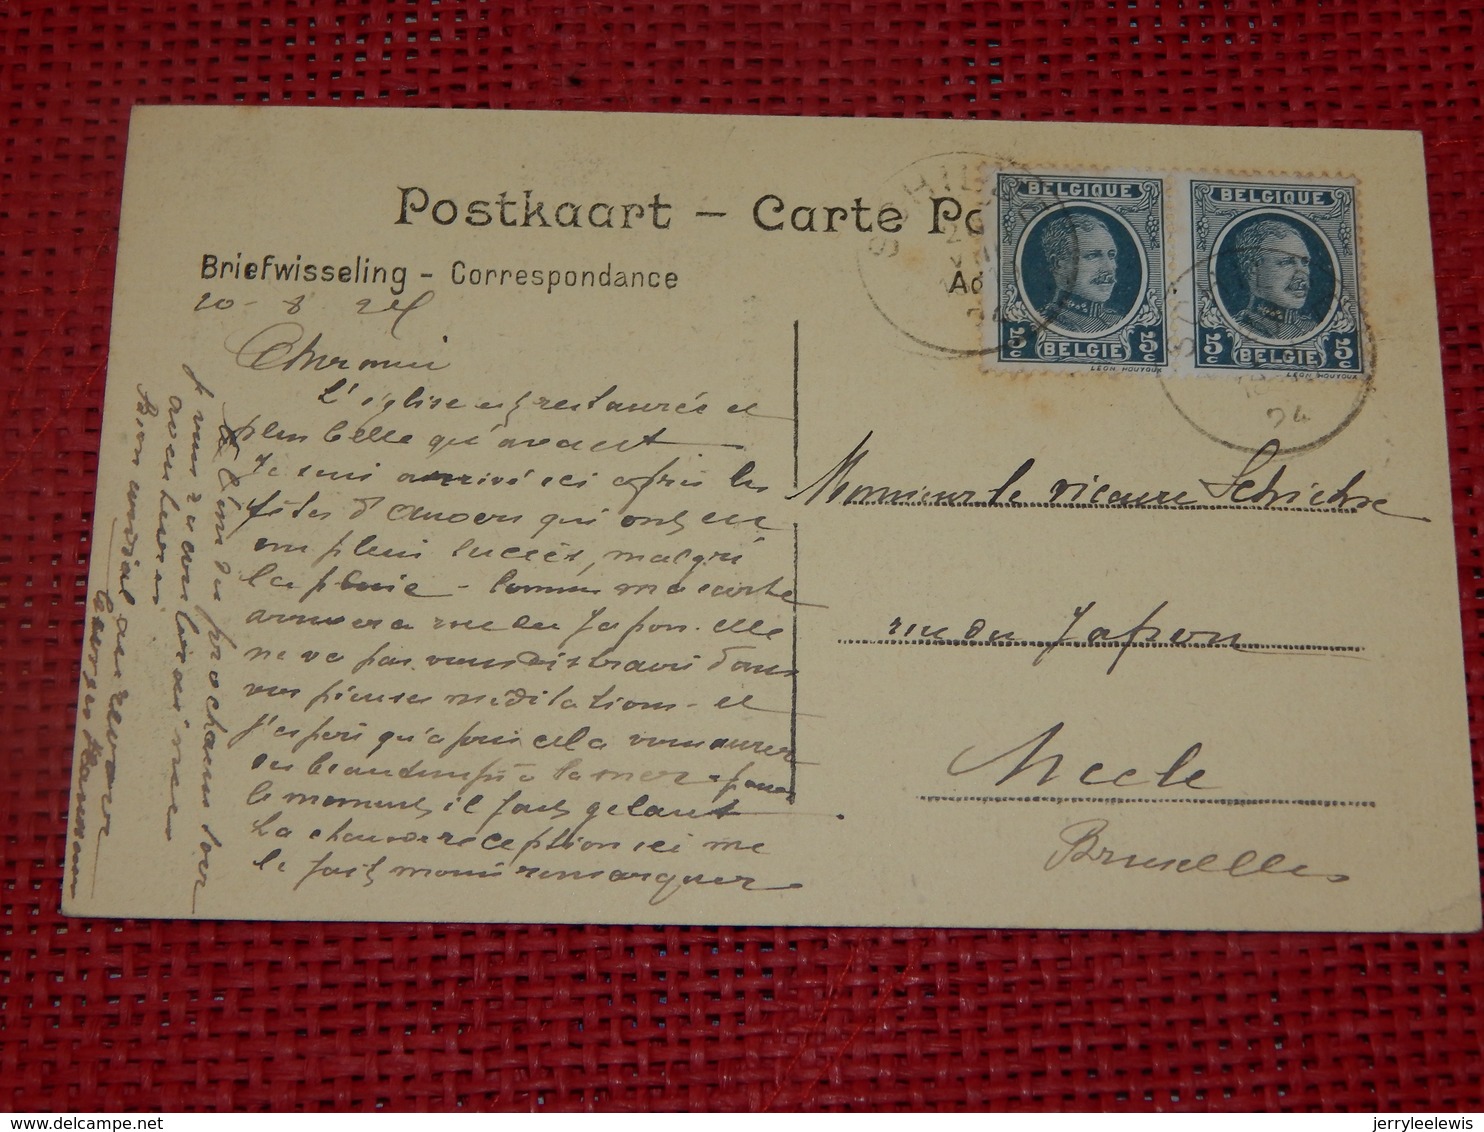 Postkaart – Carte Po
Briefwisseling – Correspondance
Ad
20-8 24
Cher ami
L'église est restaurée et
plus belle qu'avant
Je suis arrivé ici après les
fêtes d'Anvers qui ont eu
un plein succès, malgré
la pluie – comme ma carte
arrivera rue du Japon. elle
ne va pas vous distraire dans
vos pieuses méditations – et
j'espère qu'après cela vous aurez
du beau temps à la mer – pour
le moment, il fait gelant
La chaude réception ici me
le fait moins remarquer
À l'an du prochain
je vous
avouerai mes
Bien cordial au revoir
Georges
BELGIQUE
5c
5c
BELGIE
LEON HOUYOUX
BELGIQUE
5c
5c
BELGIE
LEON HOUYOUX
SCHIL
24
Monsieur le vicaire
rue du Japon
Uccle
Bruxelles
jerryleelewis